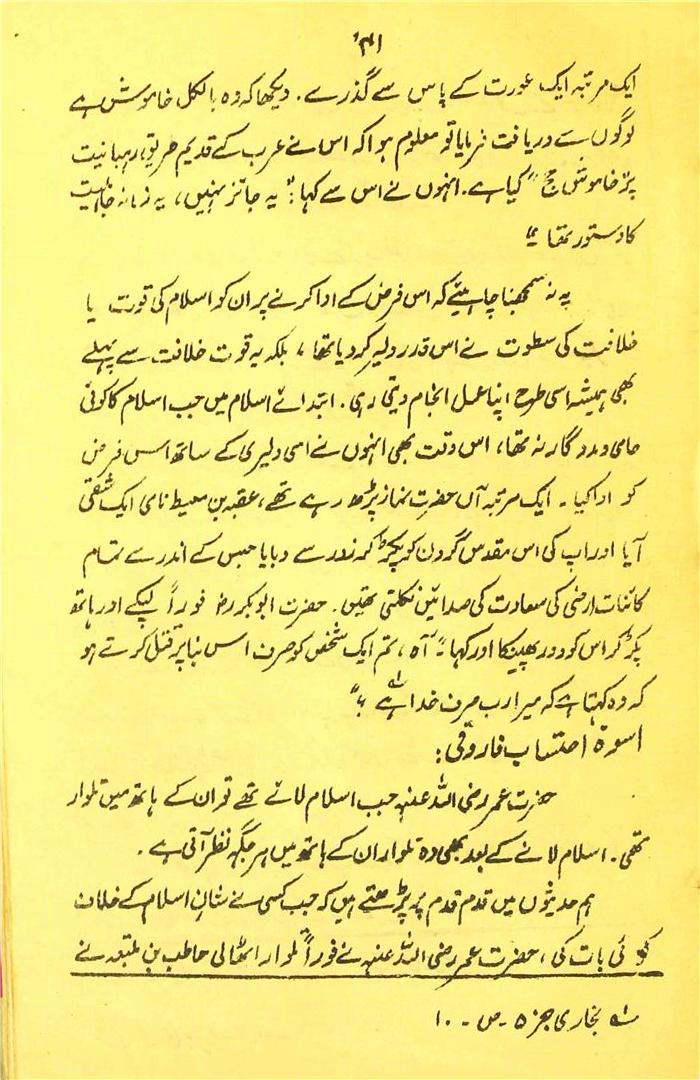 ۳۱
ایک مرتبہ ایک عورت کے پاس سے گذرے۔ دیکھا کہ وہ بالکل خاموش ہے
لوگوں سے دریافت فرمایا تو معلوم ہوا کہ اس نے عرب کے قدیم طریق رہبانیت
پر خاموش حج" کیا ہے۔ انہوں نے اس سے کہا: "یہ جائز نہیں، یہ زمانہ جاہلیت
کا دستور تھا"
یہ نہ سمجھنا چاہیئے کہ اس فرض کے ادا کرنے پر ان کو اسلام کی قوت یا
خلافت کی سطوت نے اس قدر دلیر کر دیا تھا، بلکہ یہ قوت خلافت سے پہلے
بھی ہمیشہ اسی طرح اپنا عمل انجام دیتی رہی۔ ابتدائے اسلام میں جب اسلام کا کوئی
حامی و مددگار نہ تھا، اس وقت بھی انہوں نے اسی دلیری کے ساتھ اس فرض
کو ادا کیا۔ ایک مرتبہ آں حضرت نماز پڑھ رہے تھے، عقبہ بن معیط نامی ایک شقی
آیا اور آپ کی اس مقدس گردن کو پکڑ کر زور سے دبایا جس کے اندر سے تمام
کائنات ارضی کی سعادت کی صدائیں نکلتی تھیں۔ حضرت ابوبکر رض فوراً لپکے اور ہاتھ
پکڑ کر اس کو دور پھینکا اور کہا: "آہ، تم ایک شخص کو صرف اس بنا پر قتل کرتے ہو
کہ وہ کہتا ہے کہ میرا رب صرف خدا ہے؟" لہ
اسوۂ احتساب فاروقی:
حضرت عمر رضی اللہ عنہ جب اسلام لائے تھے تو ان کے ہاتھ میں تلوار
تھی۔ اسلام لانے کے بعد بھی وہ تلوار ان کے ہاتھ میں ہر جگہ نظر آتی ہے۔
ہم حدیثوں میں قدم قدم پر پڑھتے ہیں کہ جب کسی نے شان اسلام کے خلاف
کوئی بات کی، حضرت عمر رضی اللہ عنہ نے فوراً تلوار اٹھالی حاطب بن بلتعہ نے
لہ بخاری جز ۵ - ص - ۱۰